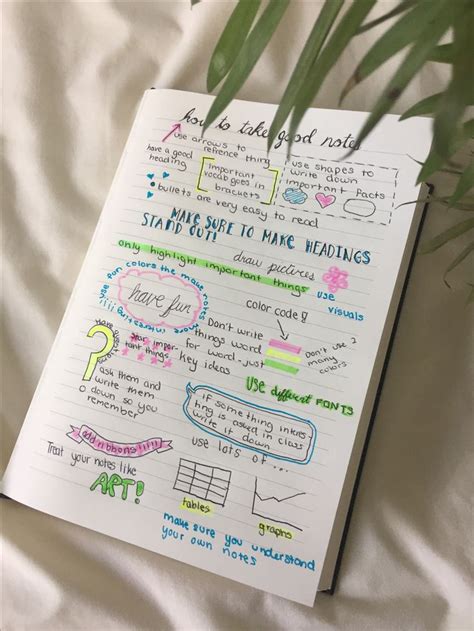 how to take good notes
use arrows to
refrence thing
have a good
heading
important
vocab goes in
brackets
use shapes to
write down
important facts
bullets are very easy to read
MAKE SURE TO MAKE HEADINGS
STAND OUT!
draw pictures
only highlight important things
use
visuals
use fun colors
have fun
color code!!
Don't write
things word
for word-just
key ideas
Don't use 2
many
colors
Star impor-
tant things
Have
questions
ask them and
write them
down so you
remember
USE different FONTS
if something interes-
ting is asked in class
write it down
add ribbons!!!!!
use lots of ...
Treat your notes like
ART!
tables
graphs
make sure you understand
your own notes